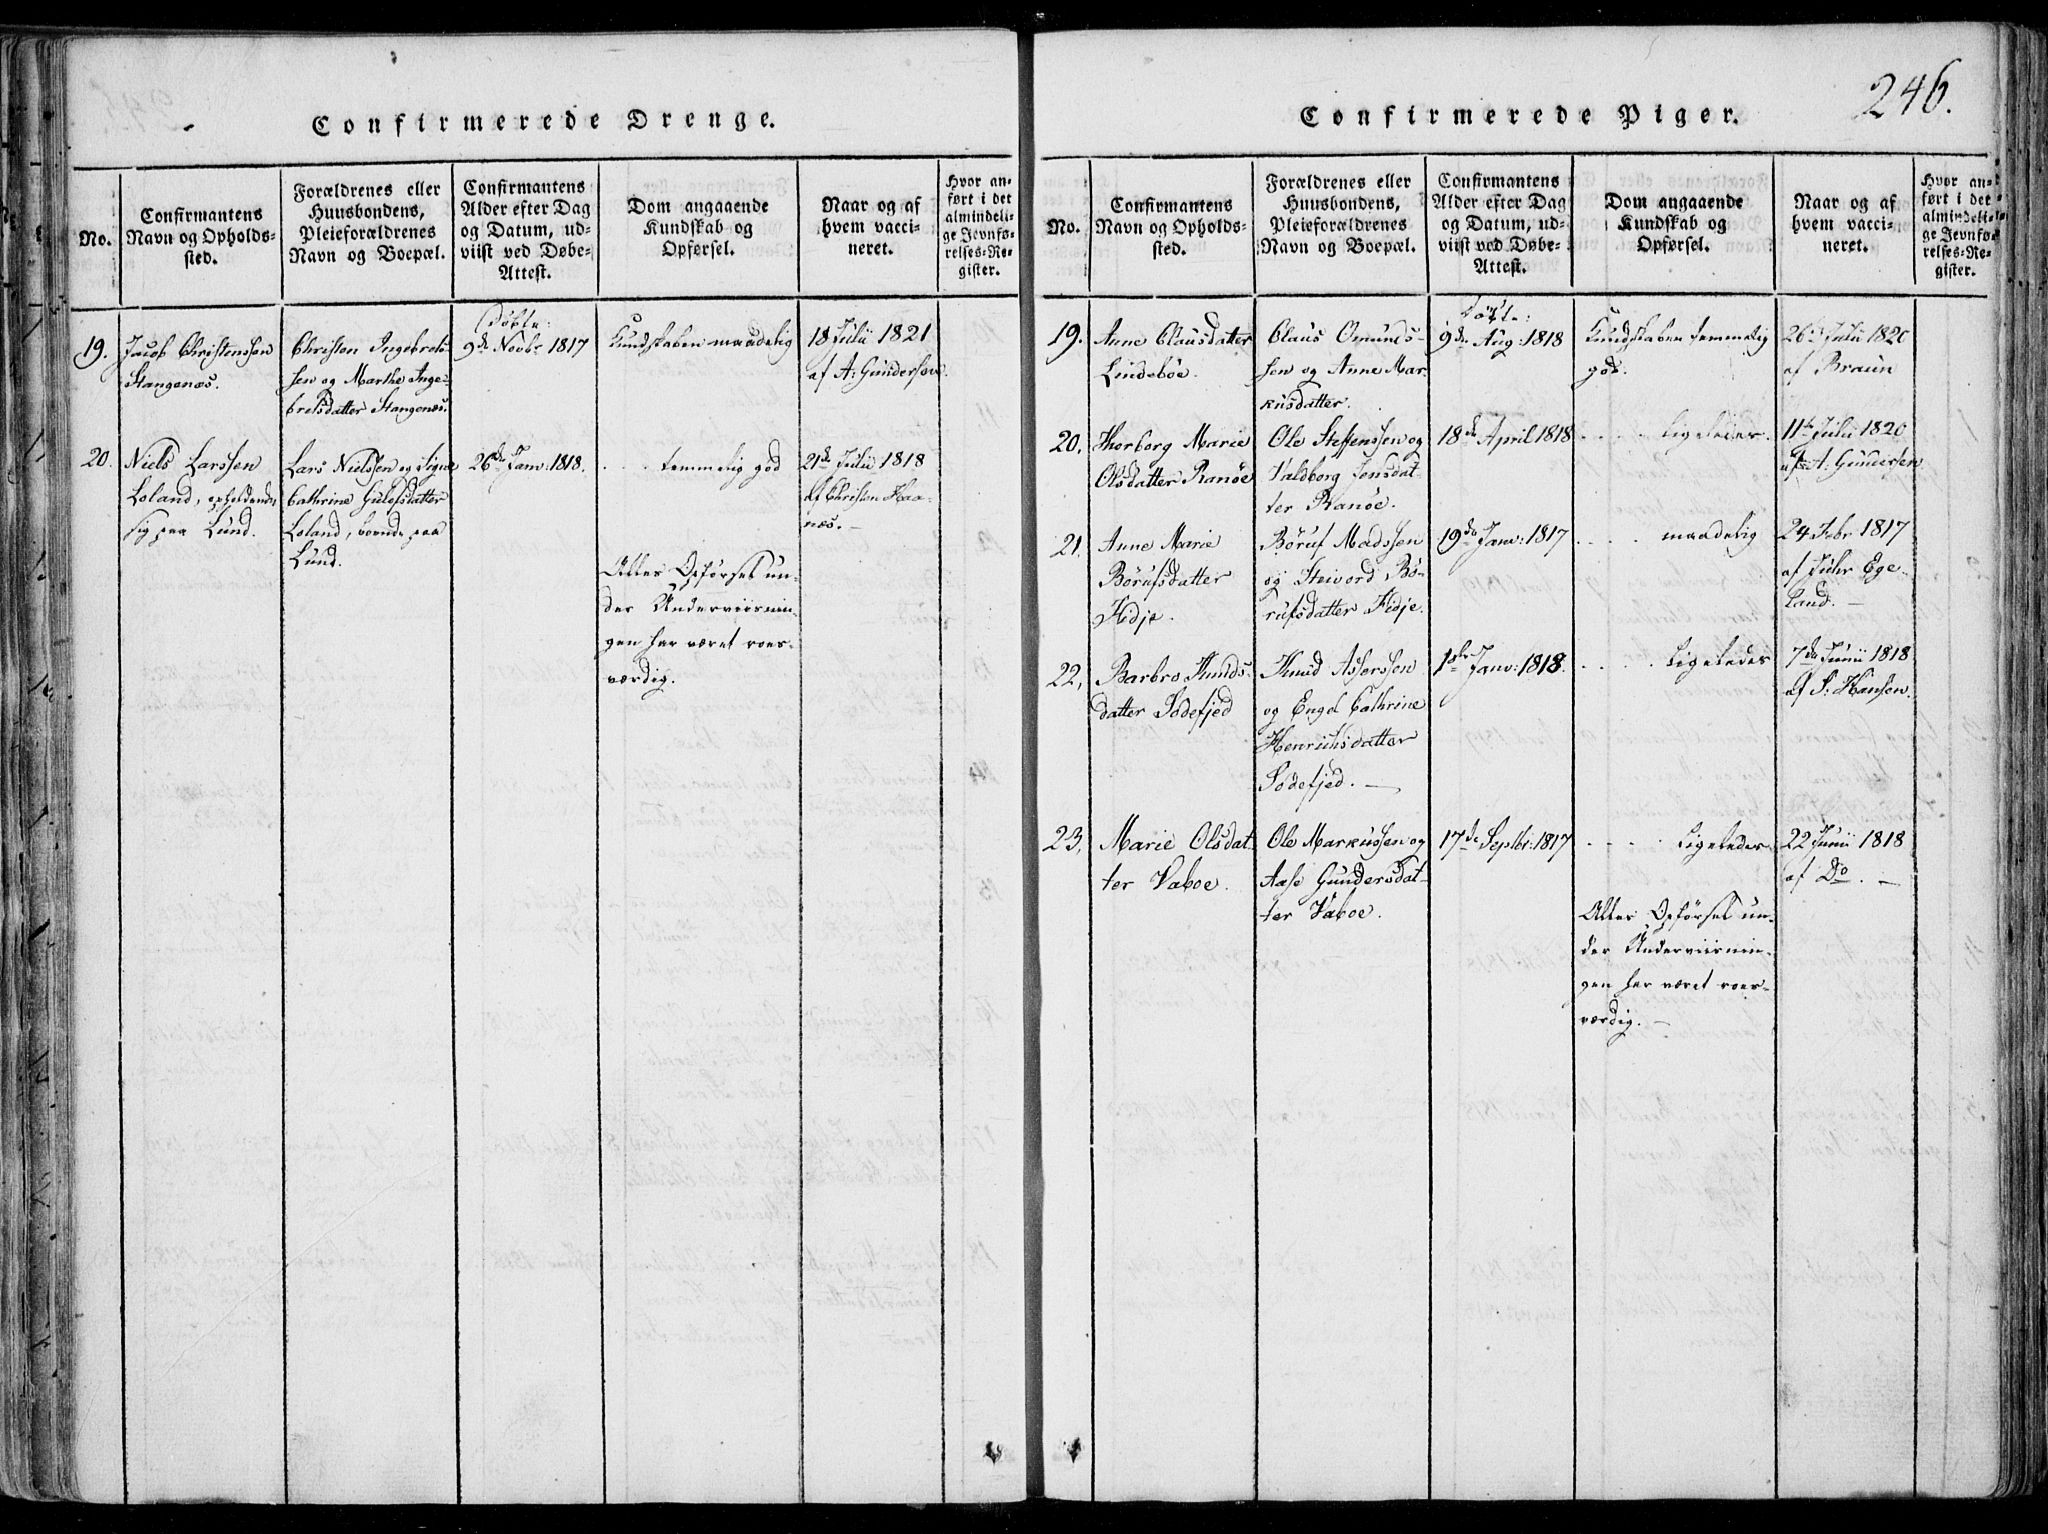 Confirmerede Drenge.
No.
Confirmantens
Navn og Opholds-
sted.
Forældrenes eller
Huusbondens,
Pleieforældrenes
Navn og Boepæl.
Confirmantens
Alder efter Dag
og Datum, ud-
viist ved Døbe-
Attest.
Dom angaaende
Kundskab og
Opførsel.
Naar og af
hvem vacci-
neret.
Hvor an-
ført i det
almindeli-
ge Jevnfø-
relses-Re-
gister.
19.
Jacob Christenssen
Stangenæs.
Christen Ingebrets-
sen og Marthe Inge-
bretsdatter Stangenæs.
Døbte:
9de Novbr 1817
Kundskaben maadelig
18 Julii 1821
af A: Gundersen.
20.
Niels Larssen
Loland, opholdende
sig paa Lund.
Lars Nielssen og Signe
Cathrine Gulefsdatter
Loland, boende paa
Lund.
26de Janv: 1818.
. . . temmelig god
21de Julii 1818
af Christen Haa-
næs. —
Alles Opførsel un-
der Underviisnin-
gen har været roes-
værdig.
Confirmerede Piger.
246.
No.
Confirmantens
Navn og Opholds-
sted.
Forældrenes eller
Huusbondens,
Pleieforældrenes
Navn og Boepæl.
Confirmantens
Alder efter Dag
og Datum, ud-
viist ved Døbe-
Attest.
Dom angaaende
Kundskab og
Opførsel.
Naar og af
hvem vacci-
neret.
Hvor an-
ført i det
almindeli-
ge Jevnfø-
relses-Re-
gister.
19.
Anne Clausdatter
Lindebøe.
Claus Omunds-
sen og Anne Mar-
kusdatter.
Døbte:
9de Aug: 1818
Kundskaben temmelig
god.
26de Julii 1820
af Braun
20.
Thorborg Marie
Olsdatter Ranøe
Ole Steffenssen og
Valdborg Jensdat-
ter Ranøe.
18de April 1818
. . . . ligeledes.
11te Julii 1820
af A: Gundersen
21.
Anne Marie
Børufsdatter
Fidje.
Børuf Madssen
og Steivord Bø-
rufsdatter Fidje.
19de Janv: 1817
. . . . maadelig
24 Febr 1817
af Ege-
land. —
22,
Barbro Knuds-
datter Sodefjed
Knud Asserssen
og Engel Cathrine
Henrichsdatter
Sodefjed. —
1ste Janv: 1818.
. . . . Ligeledes
7de Junii 1818
af S: Hansen.
23,
Marie Olsdat-
ter Vaboe.
Ole Markussen og
Aase Gundersdat-
ter Vaboe.
17de Septbr: 1817
. . . . Ligeledes
22 Junii 1818
af Do. —
Alles Opførsel un-
der Underviisnin-
gen har været roes-
værdig. —